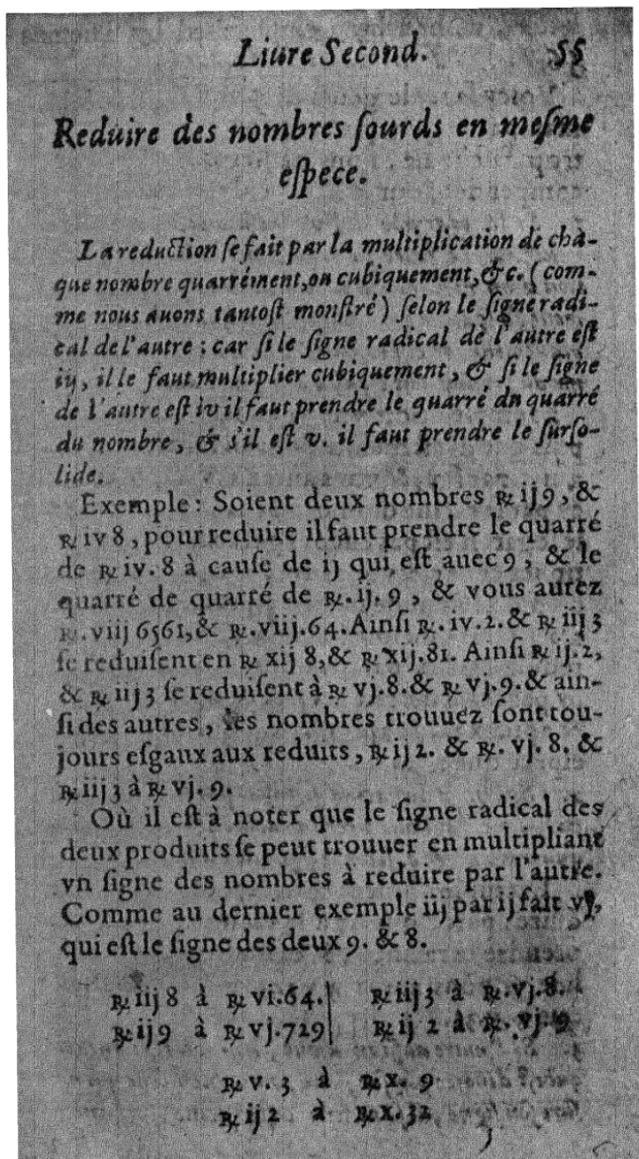 Liure Second. 55
Reduire des nombres ſourds en meſme
eſpece.
La reduction ſe fait par la multiplication de châ-
que nombre quarrément, ou cubiquement, &c. (com-
me nous auons tantoſt monſtré) ſelon le ſigne radi-
cal de l'autre : car ſi le ſigne radical de l'autre eſt
iij, il le faut multiplier cubiquement, & ſi le ſigne
de l'autre eſt iv il faut prendre le quarré du quarré
du nombre, & s'il eſt v. il faut prendre le ſurſo-
lide.
Exemple: Soient deux nombres ℞ ij 9, &
℞ iv 8, pour reduire il faut prendre le quarré
de ℞ iv. 8 à cauſe de ij qui eſt auec 9, & le
quarré de quarré de ℞. ij. 9, & vous aurez
℞. viij 6561, & ℞. viij. 64. Ainſi ℞. iv. 2. & ℞ iij 3
ſe reduiſent en ℞ xij 8, & ℞ xij. 81. Ainſi ℞ ij. 2,
& ℞ iij 3 ſe reduiſent à ℞ vj. 8. & ℞ vj. 9. & ain-
ſi des autres, les nombres trouuez ſont tou-
jours eſgaux aux reduits, ℞ ij 2. & ℞. vj. 8. &
℞ iij 3 à ℞ vj. 9.
Où il eſt à noter que le ſigne radical des
deux produits ſe peut trouuer en multipliant
vn ſigne des nombres à reduire par l'autre.
Comme au dernier exemple iij par ij fait vj,
qui eſt le ſigne des deux 9. & 8.
℞ iij 8 à ℞ vi. 64. | ℞ iij 3 à ℞. vj. 8.
℞ ij 9 à ℞ vj. 729 | ℞ ij 2 à ℞. vj. 9
℞ v. 3 à ℞ x. 9
℞ ij 2 à ℞ x. 32